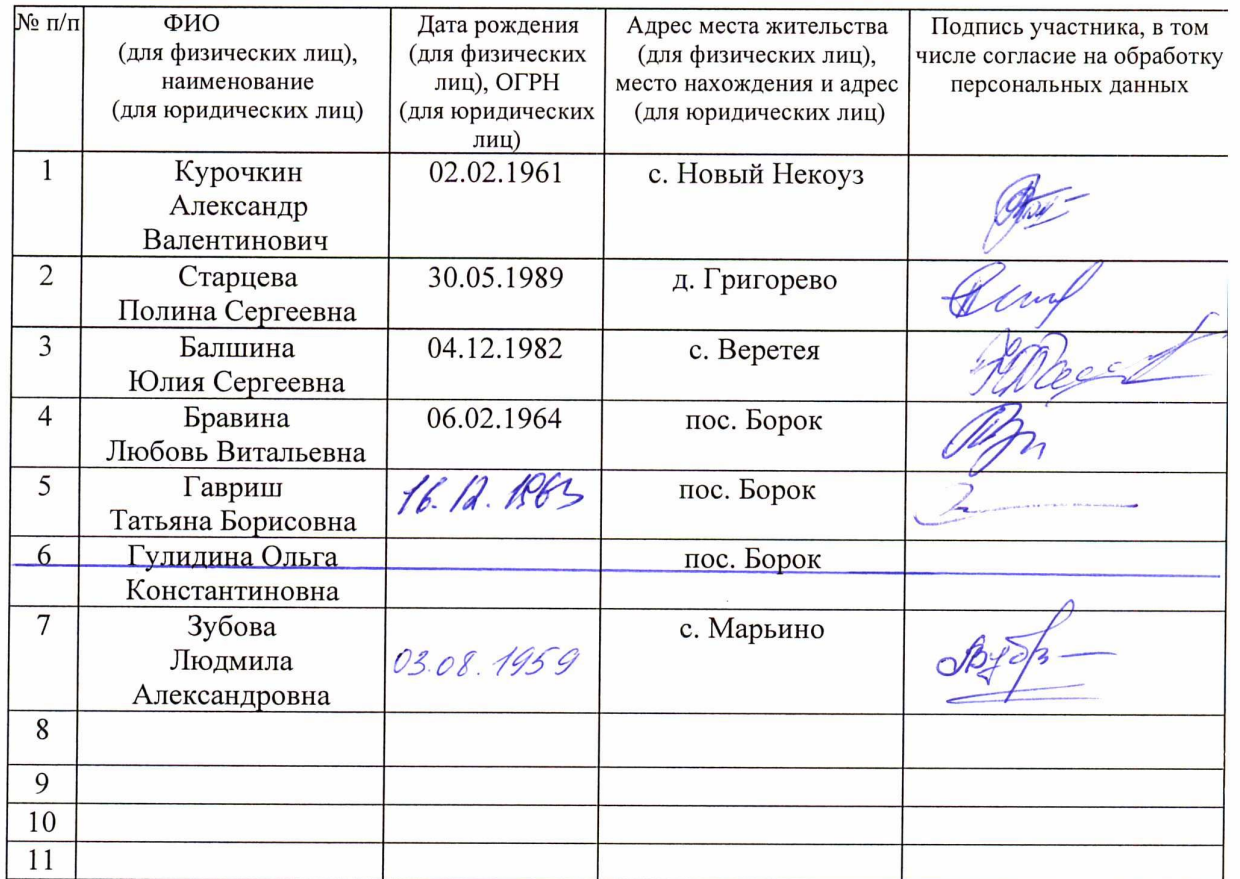 № п/п
ФИО
(для физических лиц),
наименование
(для юридических лиц)
Дата рождения
(для физических
лиц), ОГРН
(для юридических
лиц)
Адрес места жительства
(для физических лиц),
место нахождения и адрес
(для юридических лиц)
Подпись участника, в том
числе согласие на обработку
персональных данных
1
Курочкин
Александр
Валентинович
02.02.1961
с. Новый Некоуз
2
Старцева
Полина Сергеевна
30.05.1989
д. Григорево
3
Балшина
Юлия Сергеевна
04.12.1982
с. Веретея
4
Бравина
Любовь Витальевна
06.02.1964
пос. Борок
5
Гавриш
Татьяна Борисовна
16.12.1963
пос. Борок
6
Гулидина Ольга
Константиновна
пос. Борок
7
Зубова
Людмила
Александровна
03.08.1959
с. Марьино
8
9
10
11